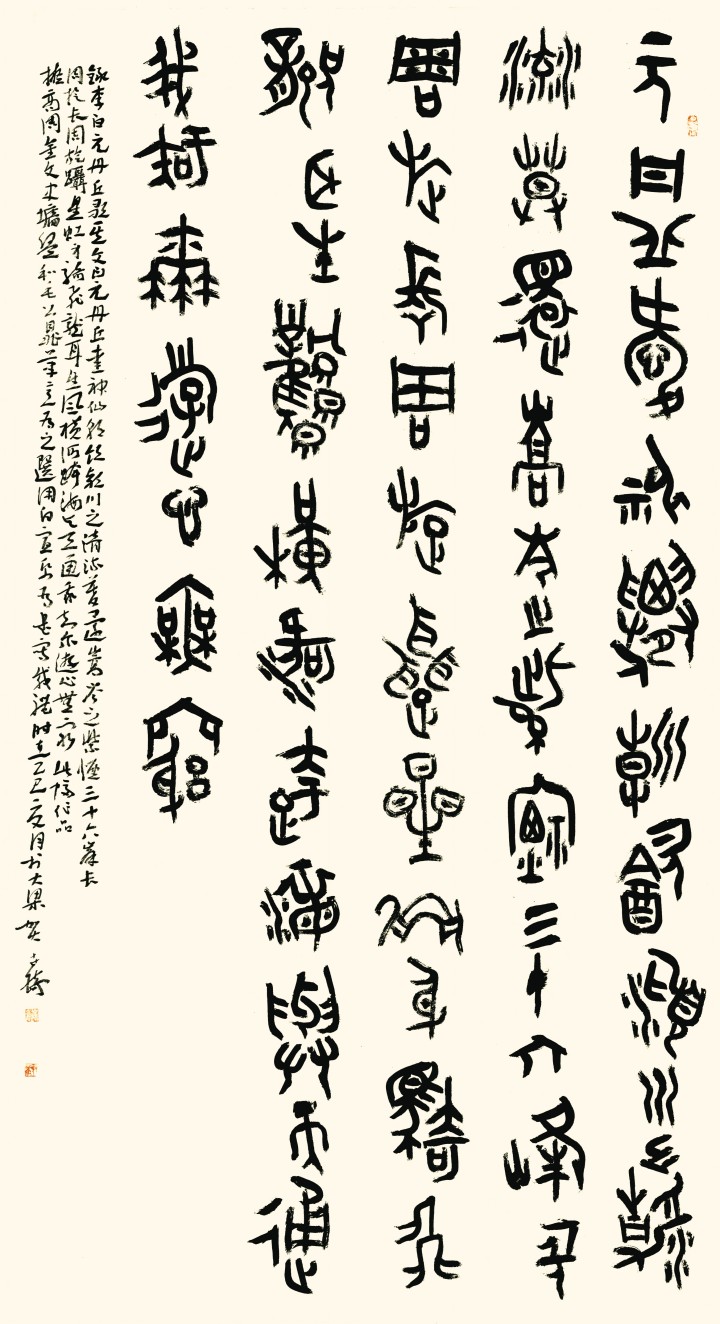 元丹丘愛神僊朝飲潁川之清
流莫還嵩岑之紫煙三十六峰長
周旋長周旋躡星虹身騎飛
龍耳生風橫河跨海與天通
我知爾遊心無窮
錄李白元丹丘歌正文曰元丹丘愛神仙朝飲潁川之清流暮還嵩岑之紫煙三十六峰長
周旋長周旋躡星虹身騎飛龍耳生風橫河跨海與天通我知爾遊心無窮此條作品
據商周金文史墻盤和毛公鼎筆意為之選用白宣為書寫載體時在乙巳夏月於大梁賀